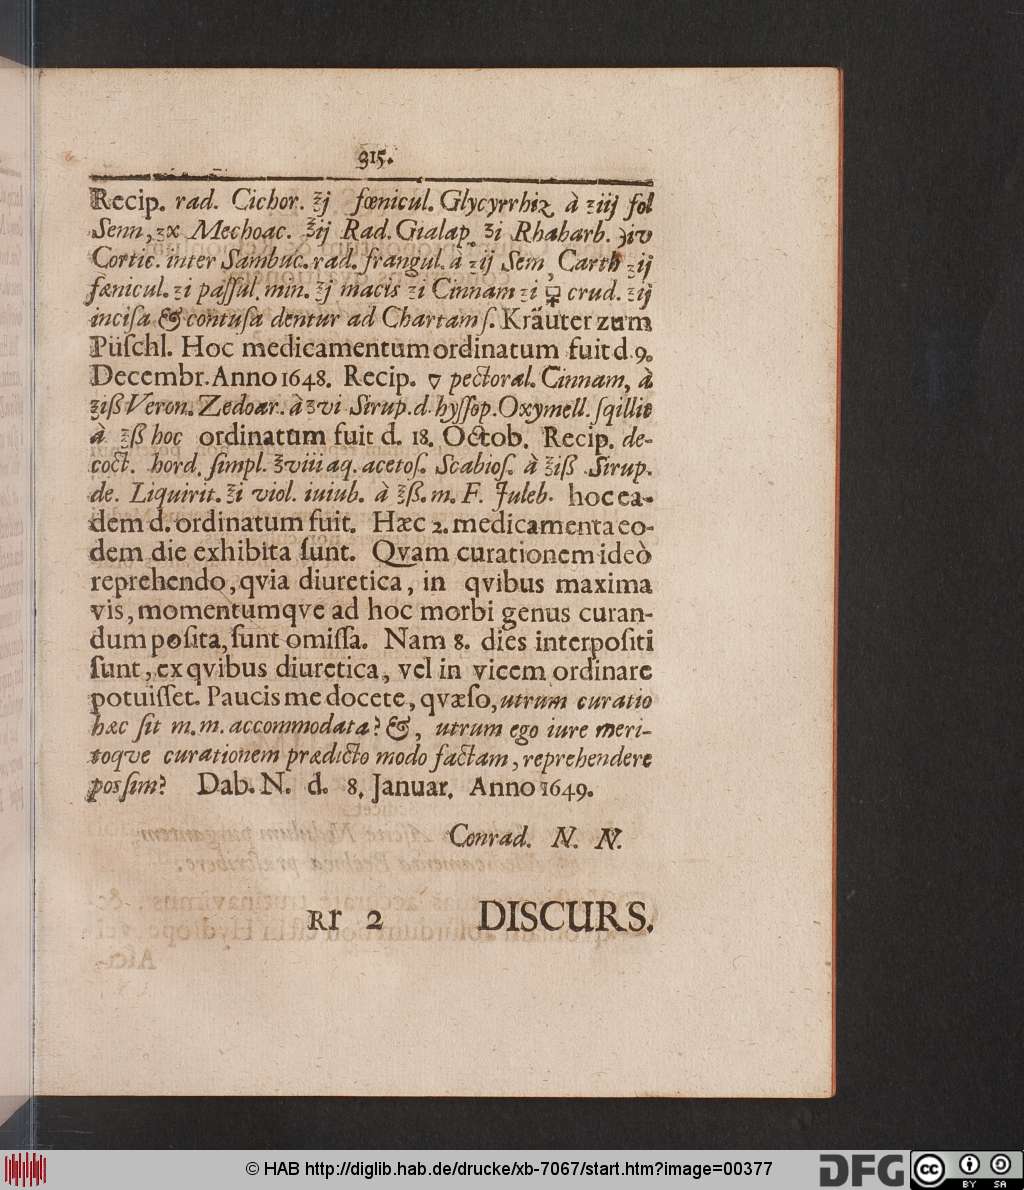 315.
Recip. rad. Cichor. ℥j fœnicul. Glycyrrhiz. à ʒiij fol
Senn, ʒx Mechoac. ℥ij Rad. Gialap. ℥i Rhabarb. ℈iv
Cortic. inter Sambuc. rad. frangul. à ʒij Sem, Carth ʒij
fænicul. ʒi paſſul. min. ℥j macis ʒi Cinnam ʒi 🜿 crud. ʒij
inciſa & contuſa dentur ad Chartam ſ. Kräuter zum
Püſchl. Hoc medicamentum ordinatum fuit d. 9.
Decembr. Anno 1648. Recip. ▽ pectoral. Cinnam, à
℥iß Veron. Zedoar. à ʒvi Sirup. d. hyſſop. Oxymell. ſqillit
à ℥ß hoc ordinatum fuit d. 18. Octob. Recip. de-
coct. hord. ſimpl. ℥viii aq. acetoſ. Scabioſ. à ℥iß Sirup.
de. Liquirit. ℥i viol. iuiub. à ℥ß. m. F. Juleb. hoc ea-
dem d. ordinatum fuit. Hæc 2. medicamenta eo-
dem die exhibita ſunt. Qvam curationem ideò
reprehendo, qvia diuretica, in qvibus maxima
vis, momentumqve ad hoc morbi genus curan-
dum poſita, ſunt omiſſa. Nam 8. dies interpoſiti
ſunt, ex qvibus diuretica, vel in vicem ordinare
potuiſſet. Paucis me docete, qvæſo, utrum curatio
hæc ſit m. m. accommodata? &, utrum ego iure meri-
toqve curationem prædicto modo factam, reprehendere
posſim? Dab. N. d. 8. Januar. Anno 1649.
Conrad. N. N.
Rr 2 DISCURS.
© HAB http://diglib.hab.de/drucke/xb-7067/start.htm?image=00377
DFG cc BY SA